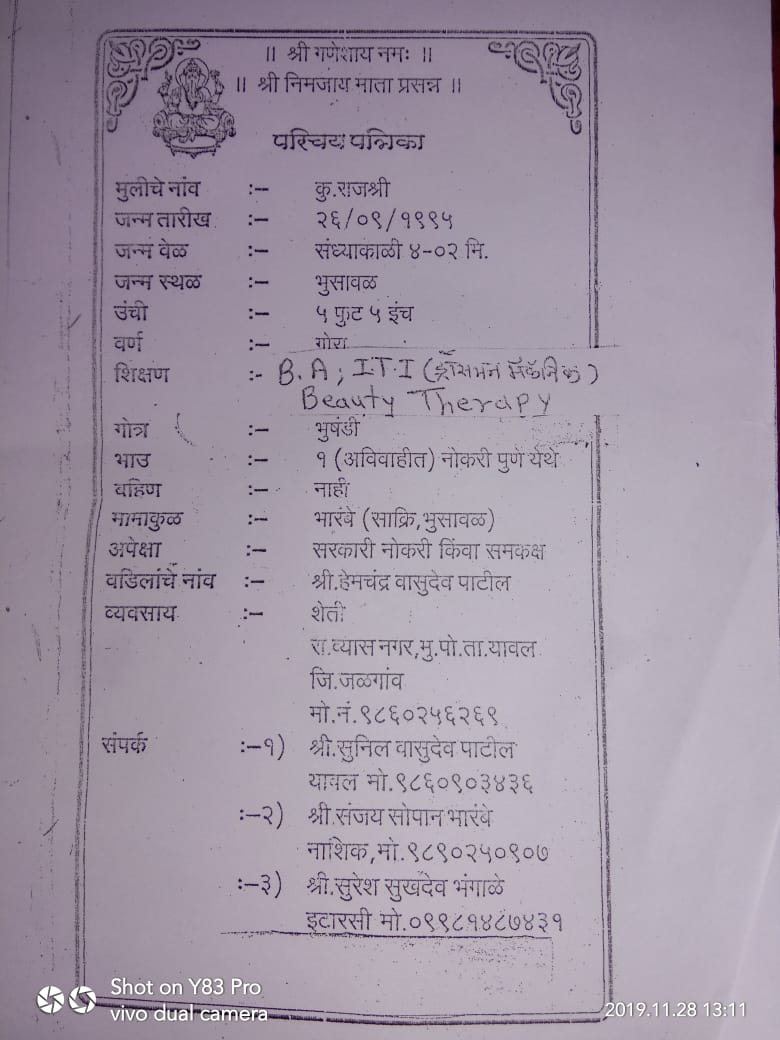 ॥ श्री गणेशाय नमः ॥
॥ श्री निमजाय माता प्रसन्न ॥
परिचय पत्रिका
मुलीचे नांव :– कु.राजश्री
जन्म तारीख :– २६/०९/१९९५
जन्म वेळ :– संध्याकाळी ४-०२ मि.
जन्म स्थळ :– भुसावळ
उंची :– ५ फुट ५ इंच
वर्ण :– गोरा
शिक्षण :- B.A ; I.T.I (ड्रॉसमन मॅकॅनिक)
Beauty Therapy
गोत्र :– भुषंडी
भाउ :– १ (अविवाहीत) नोकरी पुणे येथे
बहिण :– नाही
मामाकुळ :– भारंबे (साक्रि,भुसावळ)
अपेक्षा :– सरकारी नोकरी किंवा समकक्ष
वडिलांचे नांव :– श्री.हेमचंद्र वासुदेव पाटील
व्यवसाय :– शेती
रा.व्यास नगर,मु.पो.ता.यावल
जि.जळगांव
मो.नं.९८६०२५६२६९
संपर्क :–१) श्री.सुनिल वासुदेव पाटील
यावल मो.९८६०९०३४३६
:–२) श्री.संजय सोपान भारंबे
नाशिक,मो.९८९०२५०९०७
:–३) श्री.सुरेश सुखदेव भंगाळे
इटारसी मो.०९९८१४८७४३१
Shot on Y83 Pro
vivo dual camera
2019.11.28 13:11